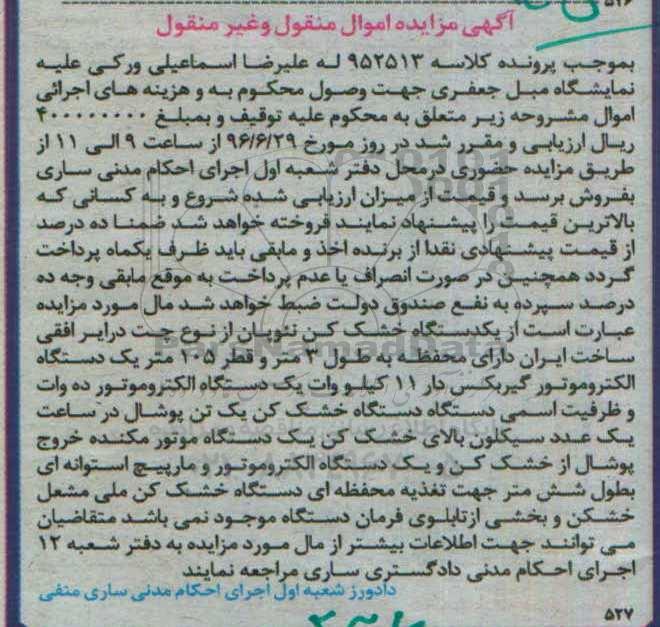 ۵۲۶
آگهی مزایده اموال منقول وغیر منقول
بموجب پرونده کلاسه ۹۵۲۵۱۳ له علیرضا اسماعیلی ورکی علیه
نمایشگاه مبل جعفری جهت وصول محکوم به و هزینه های اجرائی
اموال مشروحه زیر متعلق به محکوم علیه توقیف و بمبلغ ۴۰۰۰۰۰۰۰۰
ریال ارزیابی و مقرر شد در روز مورخ ۹۶/۶/۲۹ از ساعت ۹ الی ۱۱ از
طریق مزایده حضوری درمحل دفتر شعبه اول اجرای احکام مدنی ساری
بفروش برسد و قیمت از میزان ارزیابی شده شروع و به کسانی که
بالاترین قیمت را پیشنهاد نمایند فروخته خواهد شد ضمنا ده درصد
از قیمت پیشنهادی نقدا از برنده اخذ و مابقی باید ظرف یکماه پرداخت
گردد همچنین در صورت انصراف یا عدم پرداخت به موقع مابقی وجه ده
درصد سپرده به نفع صندوق دولت ضبط خواهد شد مال مورد مزایده
عبارت است از یکدستگاه خشک کن نئوپان از نوع جت درایر افقی
ساخت ایران دارای محفظه به طول ۳ متر و قطر ۱۰۵ متر یک دستگاه
الکتروموتور گیربکس دار ۱۱ کیلو وات یک دستگاه الکتروموتور ده وات
و ظرفیت اسمی دستگاه دستگاه خشک کن یک تن پوشال در ساعت
یک عدد سیکلون بالای خشک کن یک دستگاه موتور مکنده خروج
پوشال از خشک کن و یک دستگاه الکتروموتور و مارپیچ استوانه ای
بطول شش متر جهت تغذیه محفظه ای دستگاه خشک کن ملی مشعل
خشکن و بخشی ازتابلوی فرمان دستگاه موجود نمی باشد متقاضیان
می توانند جهت اطلاعات بیشتر از مال مورد مزایده به دفتر شعبه ۱۲
اجرای احکام مدنی دادگستری ساری مراجعه نمایند
دادورز شعبه اول اجرای احکام مدنی ساری متقی
۵۲۷
ParsNamadData